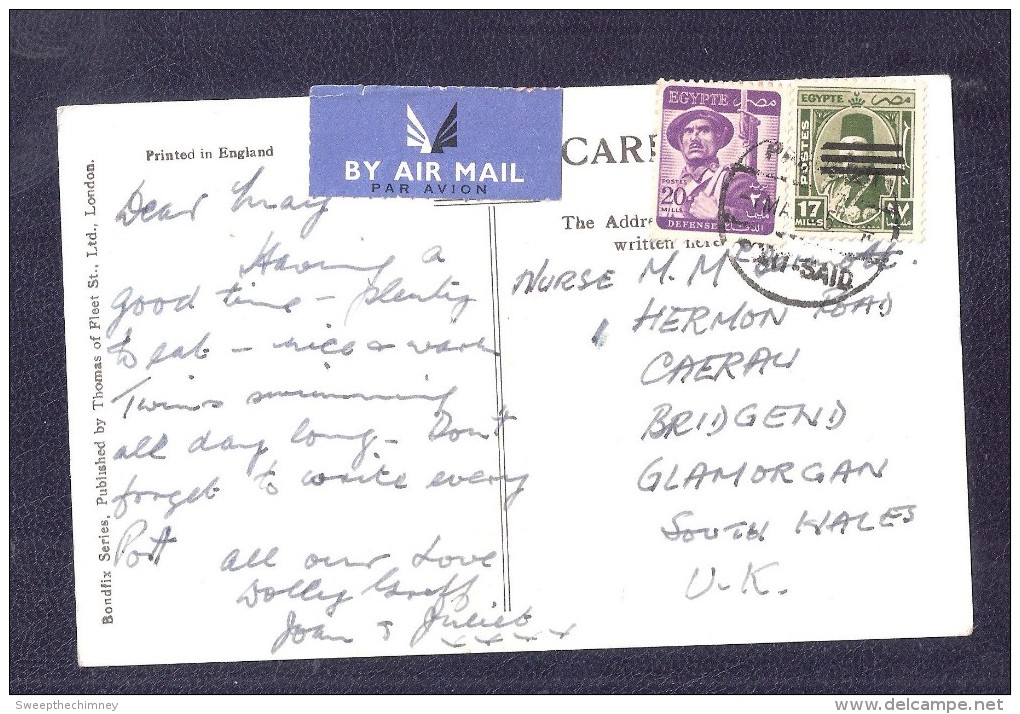 Printed in England
BY AIR MAIL
PAR AVION
CAR
The Addre
written here
Bondfix Series, Published by Thomas of Fleet St., Ltd., London.
EGYPTE مصر
POSTES
20 MILLS
DEFENSE
EGYPTE مصر
POSTES
17 MILLS
SAID
Dear Mary
Having a
good time - plenty
to eat - nice & warm
Twins swimming
all day long - Don't
forget to write every
Post
all our Love
Dolly Griff
Joan & Juliet
x x x x
NURSE M. M
HERMON ROAD
CAERAU
BRIDGEND
GLAMORGAN
SOUTH WALES
U.K.
Sweepthechimney
delcampe.net